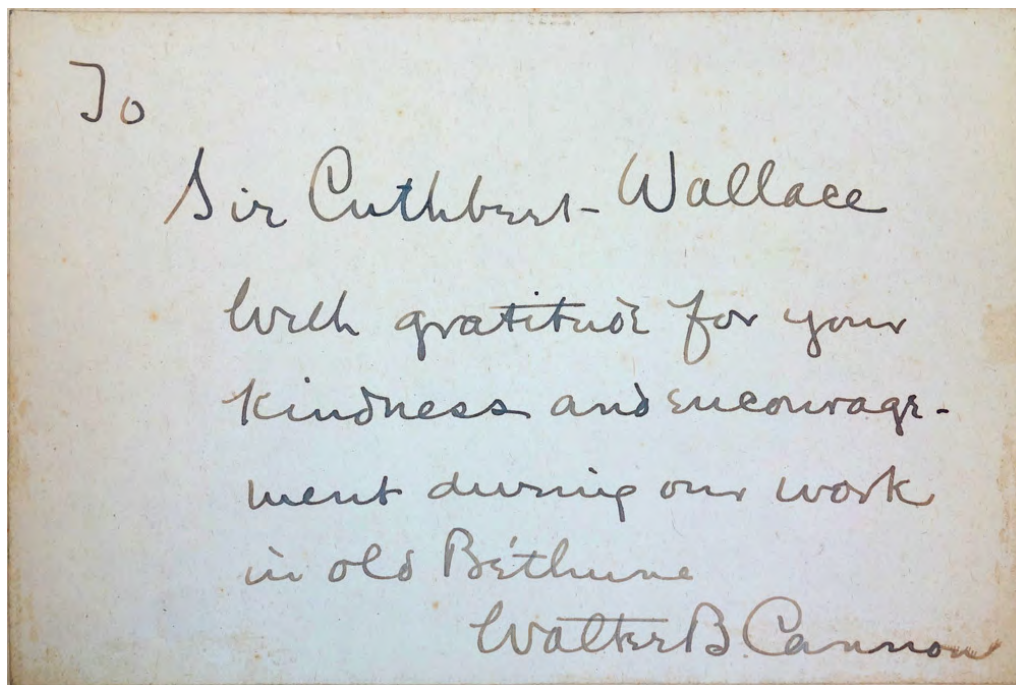 To
Sir Cuthbert Wallace
With gratitude for your
kindness and encourage-
ment during our work
in old Béthune
Walter B. Cannon